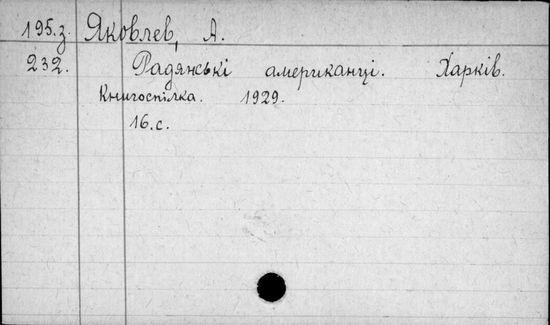 195.з. Яковлев, А.
232. Радянські американці. Харків.
Книгоспілка. 1929.
16.с.